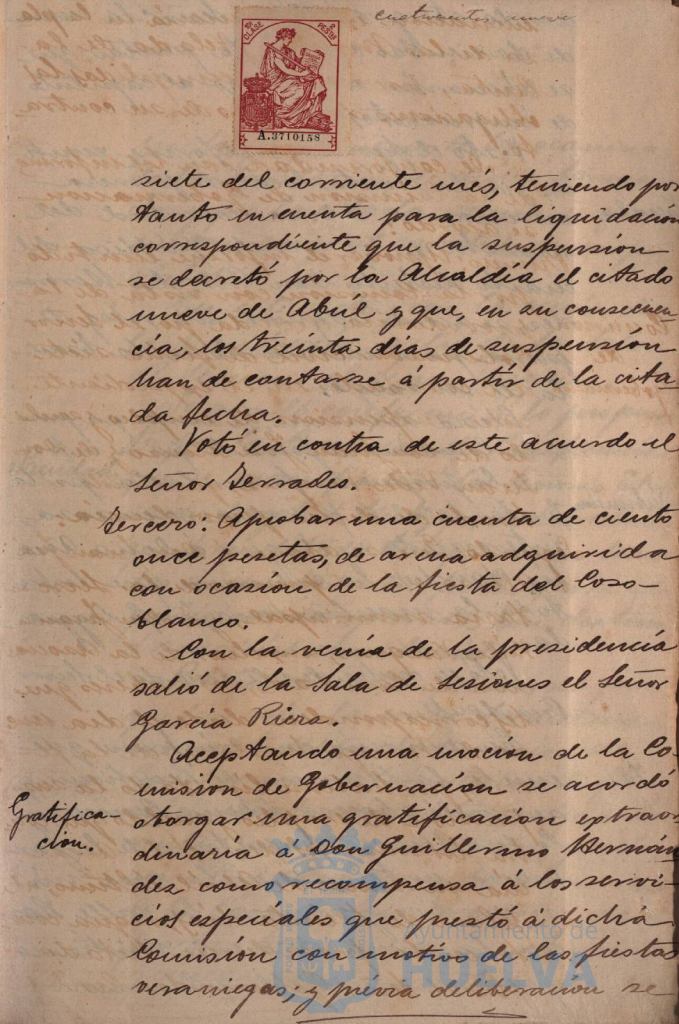 cuatrocientos nueve
CLASE 10ª
PESETAS 2
A.3710158
siete del corriente més, teniendo por
tanto en cuenta para la liquidación
correspondiente que la suspensión
se decretó por la Alcaldía el citado
nueve de Abril y que, en su consecuen-
cia, los treinta dias de suspensión
han de contarse á partir de la cita-
da fecha.
Votó en contra de este acuerdo el
Señor Terrades.
Tercero: Aprobar una cuenta de ciento
once pesetas, de arena adquirida
con ocasion de la fiesta del Coso-
blanco.
Con la venia de la presidencia
salió de la Sala de Sesiones el Señor
Garcia Riera.
Aceptando una mocion de la Co-
mision de Gobernación se acordó
Gratifica-
cion.
otorgar una gratificación extraor-
dinaria á Don Guillermo Hernán-
dez como recompensa á los servi-
cios especiales que prestó á dicha
Comisión con motivo de las fiestas
veraniegas; y prévia deliberacion se
Ayuntamiento de
HUELVA